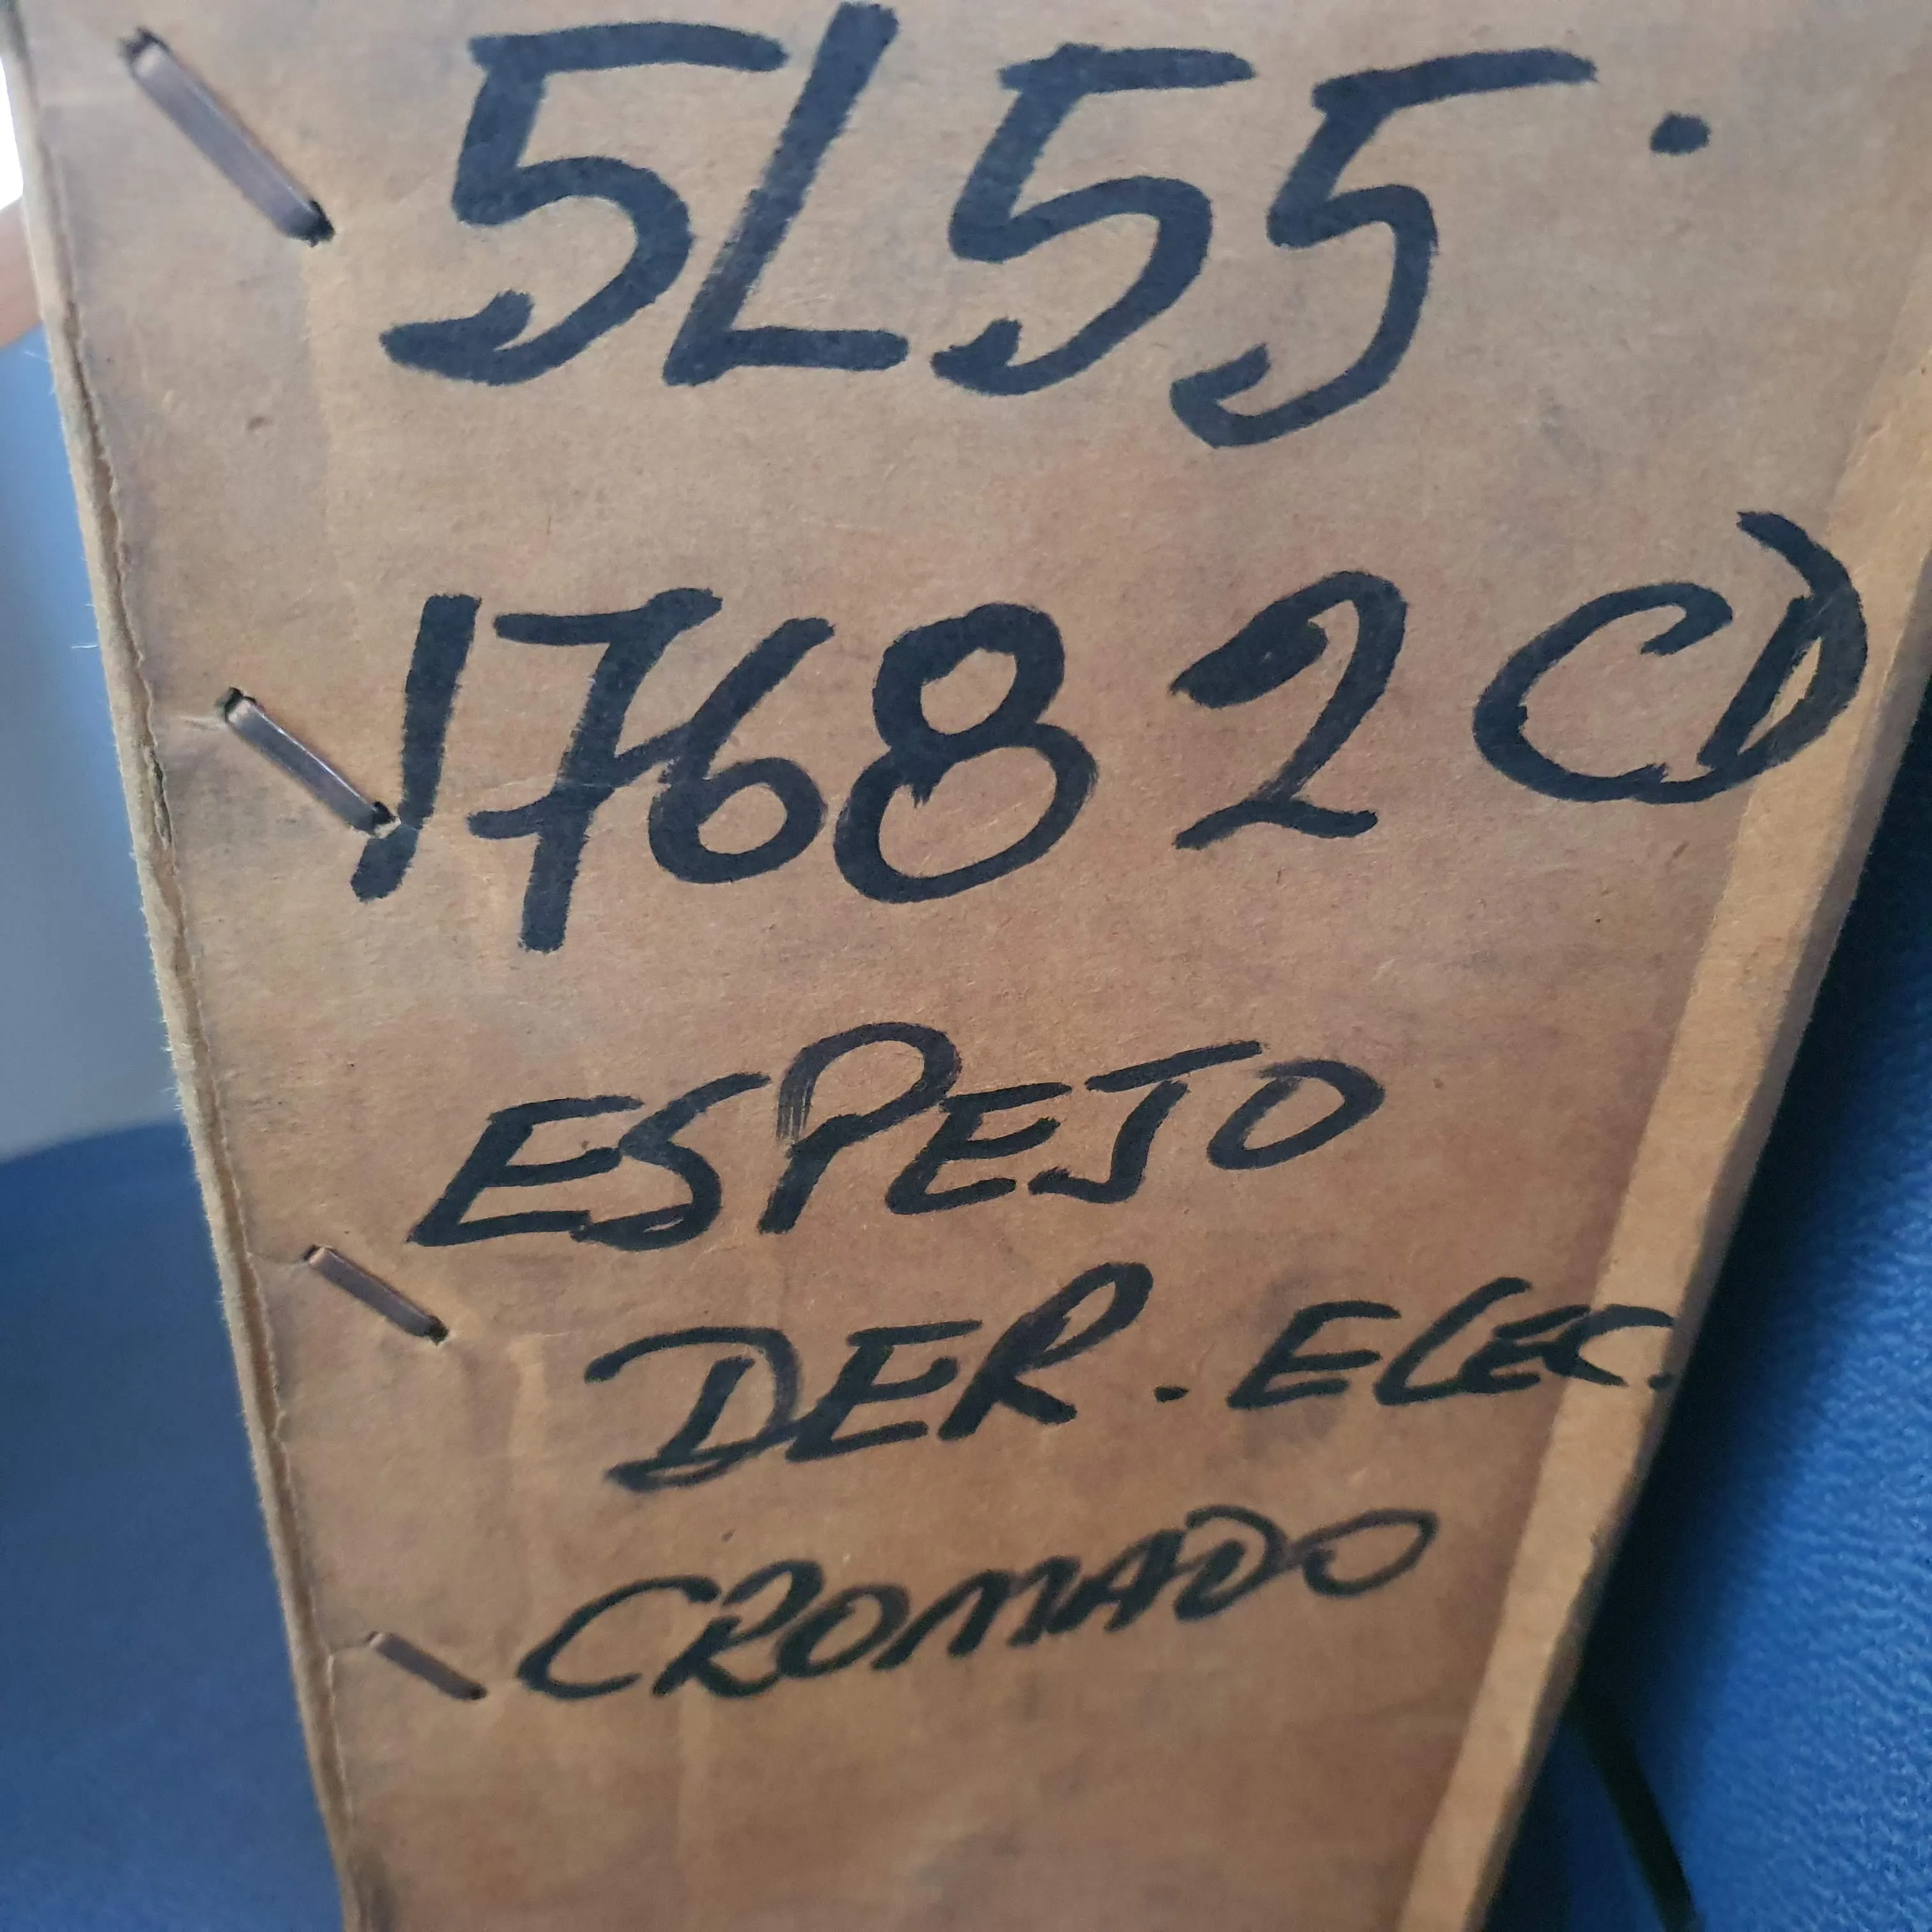 5L55.
17682CD
ESPEJO
DER. ELEC.
CROMADO